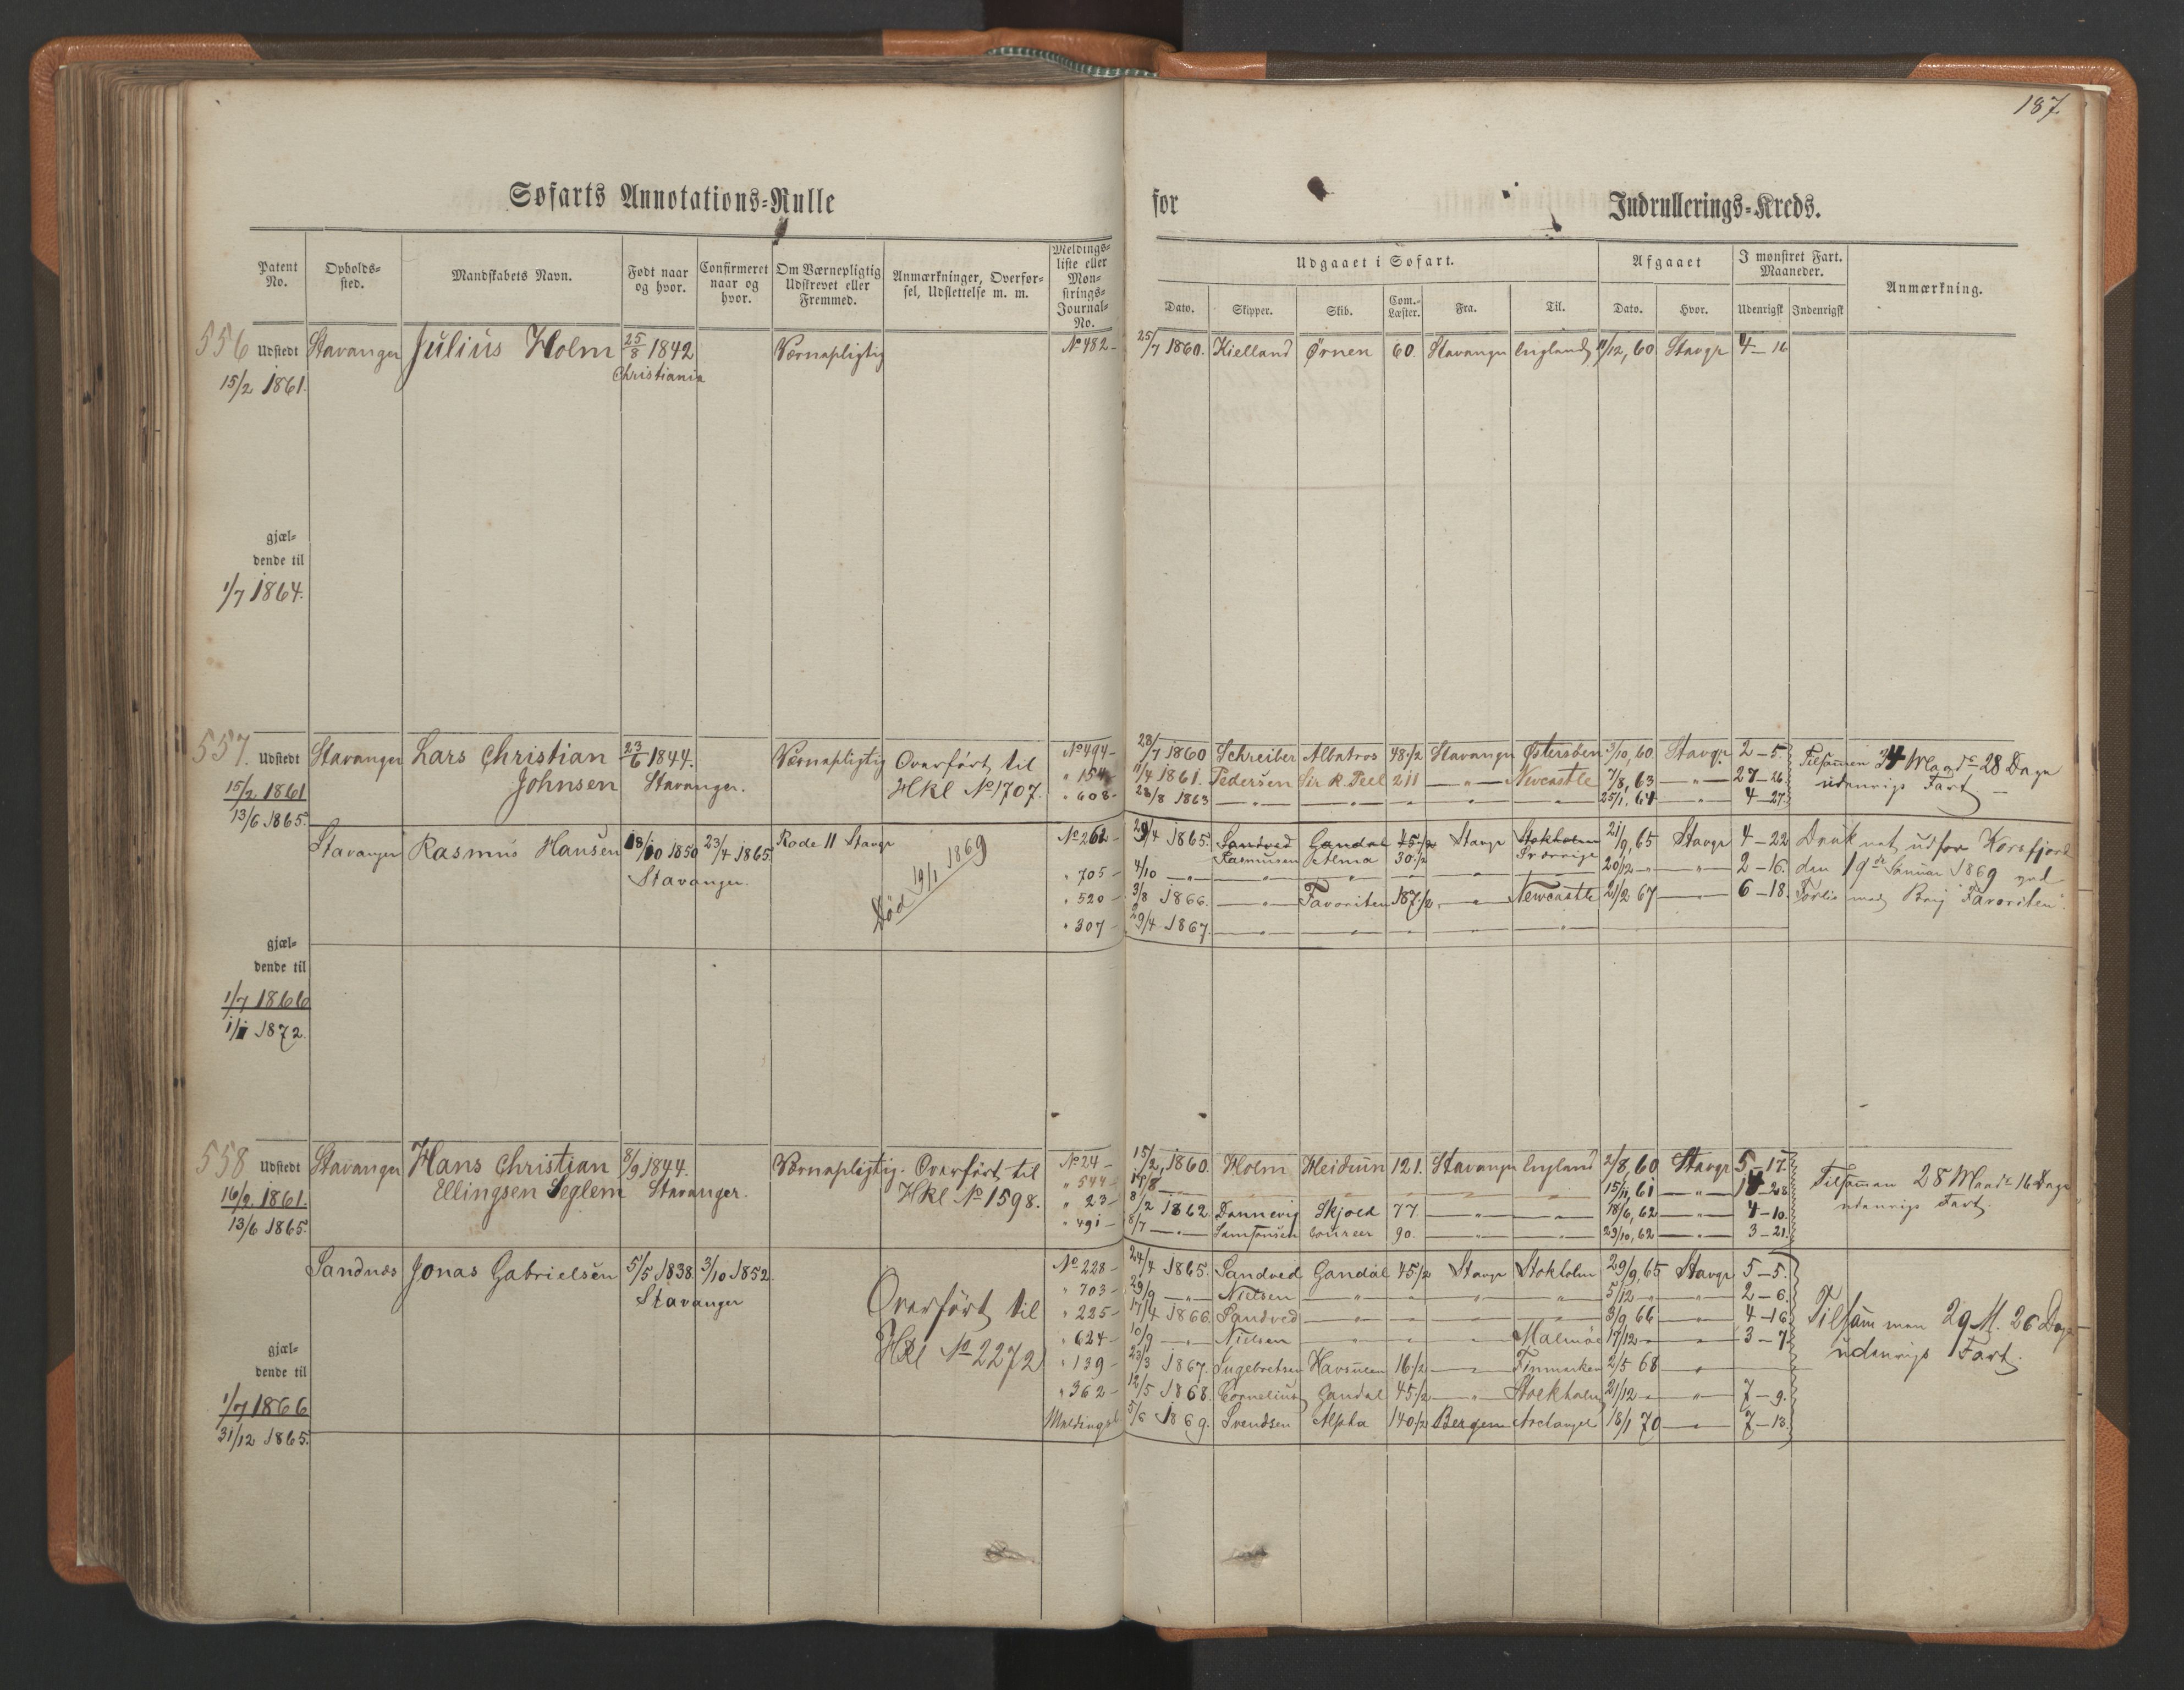 187
Søfarts Annotations=Rulle
for
Indrullerings=Kreds.
Patent No.
Opholds=sted.
Mandskabets Navn.
Født naar og hvor.
Confirmeret naar og hvor.
Om Værnepligtig Udskrevet eller Fremmed.
Anmærkninger, Overfør=sel, Udslettelse m. m.
Meldings=liste eller Møn=strings=Journal=No.
Udgaaet i Søfart.
Dato. Skipper. Skib. Com.=Læster. Fra. Til.
Afgaaet
Dato. Hvor.
I mønstret Fart. Maaneder.
Udenrigsk Indenrigsk
Anmærkning.
556 Udstedt Stavanger Julius Holm 25/8 1842 Værnepligtig No 482 - 25/7 1860. Kielland Ørnen 60. Stavanger England /12, 60. Stavgr 4 - 16
15/2 1861. Christiania
gjæl=
dende til
1/7 1864.
557. Udstedt Stavanger Lars Christian 23/6 1844. Værnepligtig Overført til No 494 - 28/7 1860 Schreiber Albatros 48 1/2 Stavanger Østersøen 3/10, 60. Stavgr. 2 - 5. Tilsammen 34 Maadr 28 Dage
15/2 1861 Johnsen Stavanger. Hkl No 1707. " 154 11/4 1861. Pedersen Sir R. Peel 211 — " — Newcastle 7/8, 63 — " — 27 - 26 udenrigs Fart. -
13/6 1865. " 608 - 28/8 1863 — " — — " — — " — — " — — " — 25/1, 64 — " — 4 - 27.
Stavanger Rasmus Hansen 18/10 1850 23/4 1865. Rode 11 Stavgr No 262 - 29/4 1865. Sandved Gandal 45 1/2 Stavgr Stokholm 21/9, 65 Stavgr 4 - 22 Druknet udfor Korsfjord
Stavanger. Død 19/1 1869 Rasmusen Alma 30 1/2 Sverrige
" 705 - 4/10 — " — — " — — " — — " — 20/12 — " — — " — 2 - 16. den 19de Januar 1869 ved
" 520 - 3/8 1866. — " — Favoriten 187 1/2 — " — Newcastle 21/2 67 — " — 6 - 18. Forlis med Brig "Favoriten".
" 307 - 29/4 1867. — " — — " — — " — — " — — " —
gjæl=
dende til
1/7 1866
1/1 1872.
558 Udstedt Stavanger Hans Christian 8/9 1844. Værnepligtig. Overført til No 24 - 15/2, 1860. Holm Heidrun 121. Stavanger England 2/8, 60 Stavgr 5 - 17.
16/2. 1861. Ellingsen Seglem Stavanger. Hkl No 1598. " 544 - — " — 15/11, 61 — " — 14 - 28 Tilsammen 28 Maadr 16 Dage
13/6 1865. " 23 - 8/2 1862. Dannevig Skjold 77 — " — — " — 18/6, 62 — " — 4 - 10. udenrigs Fart.
" 491 - 8/7 — " — Samsonsen Coureer 90. — " — — " — 29/10, 62 — " — 3 - 21.
Sandnæs Jonas Gabrielsen 5/5 1838. 3/10 1852. No 228 - 24/4 1865. Sandved Gandal 45 1/2 Stavgr Stokholm 29/9, 65 Stavgr 5 - 5.
Stavanger Overført til " 703 - 29/9 — " — Nielsen — " — — " — — " — — " — 5/12 — " — — " — 2 - 6.
" 225 - 17/4 1866. Sandved — " — — " — — " — — " — 3/9 66 — " — 4 - 16. Tilsammen 29 M. 26 Dage
Hkl No 2272 " 624 - 10/9 — " — Nielsen — " — — " — — " — Malmøe 17/12 — " — — " — 3 - 7. udenrigs Fart.
gjæl=
dende til
" 139 - 23/3 1867. Ingebretsen Havsulen 16 1/2 — " — Finmarken 2/5 68 — " —
" 362 - 12/5 1868. Cornelius Gandal 45 1/2 — " — Stockholm 21/12 — " — — " — 7 - 9.
1/7 1866 Meldingsl. 5/6 1869. Svendsen Alpha 140 1/2 Bergen Archangel 18/1 70 — " — 7 - 13.
31/12 1865.